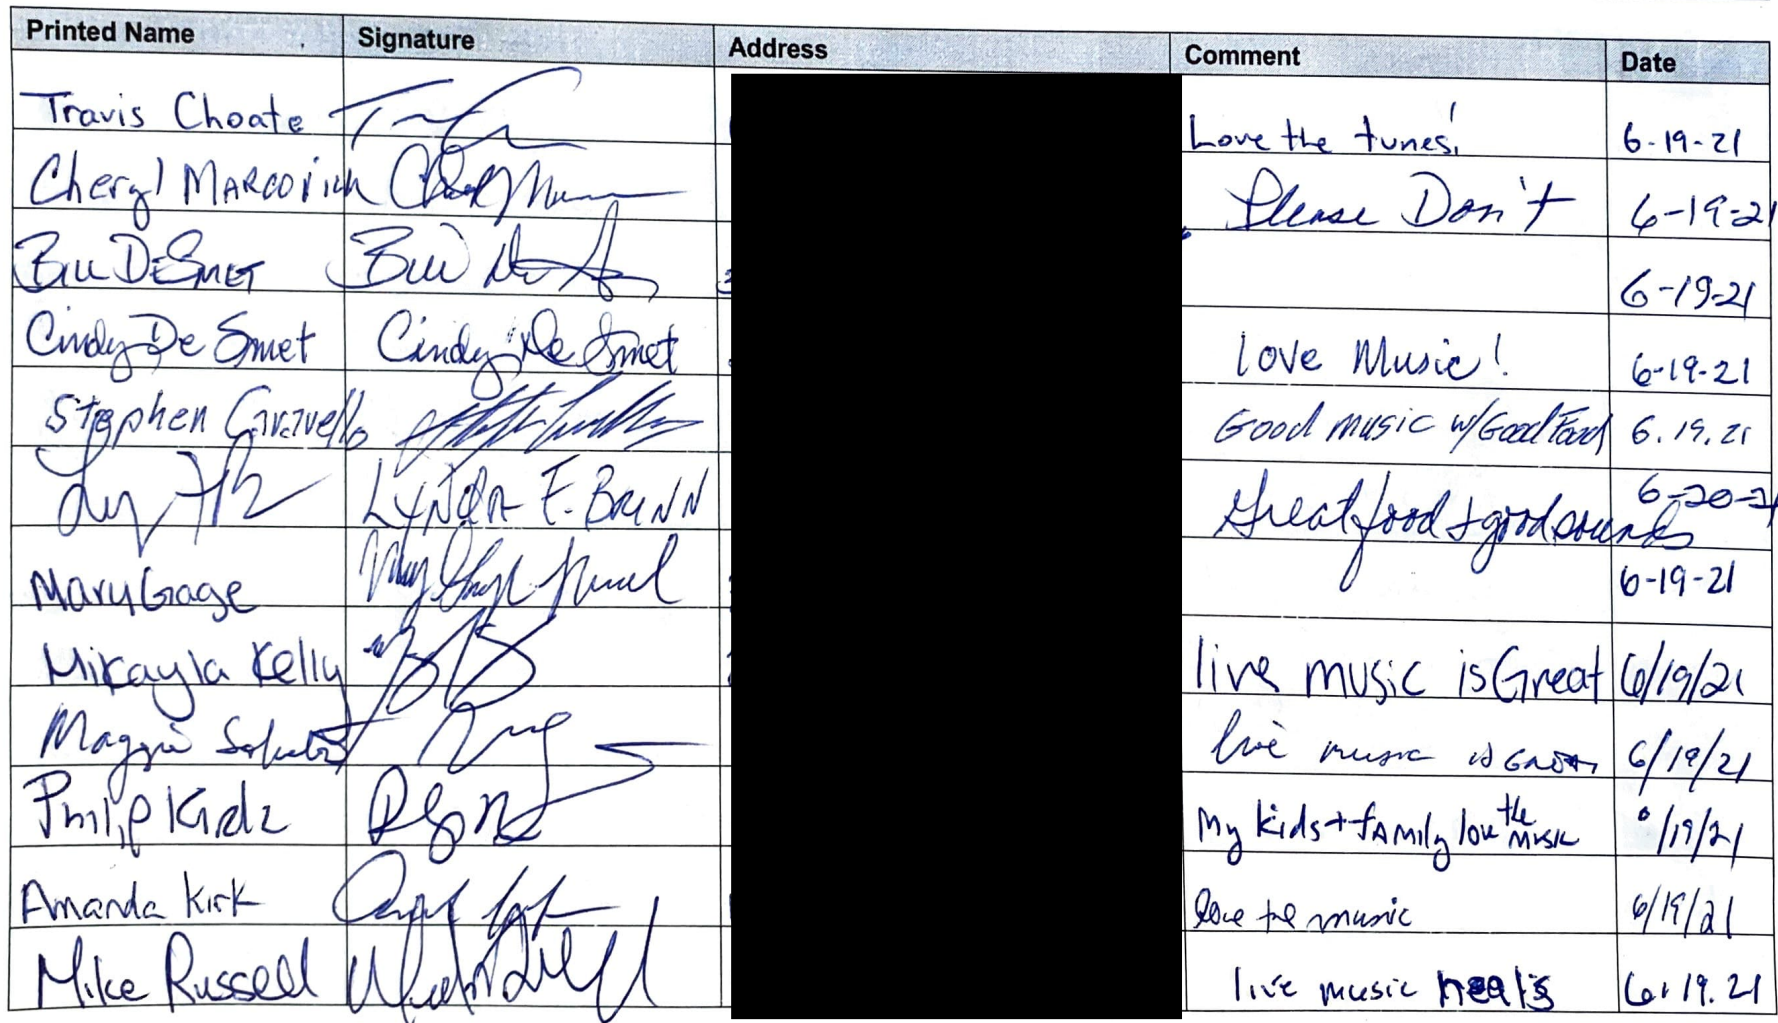 Printed Name Signature Address Comment Date
Travis Choate Love the tunes! 6-19-21
Cheryl MARCOVICH Please Don't 6-19-21
Bill DeSmet Bill 6-19-21
Cindy De Smet Cindy De Smet love Music! 6-19-21
Stephen Good music w/Good Food 6.19.21
LYNDA F. BRUNN Great food + good sounds 6-20-21
Mary Gage 6-19-21
Mikayla Kelly live music is Great 6/19/21
Maggie live music is 6/19/21
Philip My kids + fAMily love the Music /19/21
Amanda Kirk love the music 6/19/21
Mike Russell live music heals 6.19.21